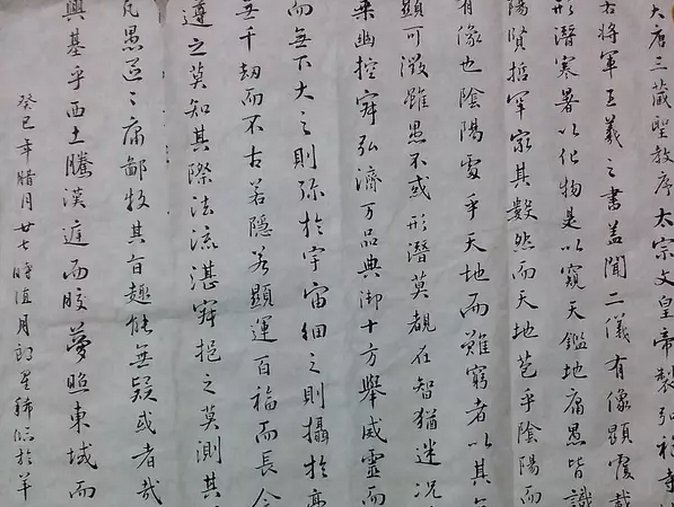 大唐三藏聖教序太宗文皇帝製弘福寺
右將軍王羲之書盖聞二儀有像顯覆載
形潛寒暑以化物是以窺天鑑地庸愚皆識
陰陽賢哲罕窮其數然而天地苞乎陰陽而
有像也陰陽處乎天地而難窮者以其無
顯可徵雖愚不惑形潛莫覩在智猶迷况
乘幽控寂弘濟万品典御十方舉威靈而
而無下大之則弥於宇宙細之則攝於毫
無千劫而不古若隱若顯運百福而長今
遵之莫知其際法流湛寂挹之莫測其
凡愚區々庸鄙投其旨趣能無疑或者哉
興基乎西土騰漢庭而皎夢照東域而
癸巳年腊月廿七時值月朗星稀臨於羊